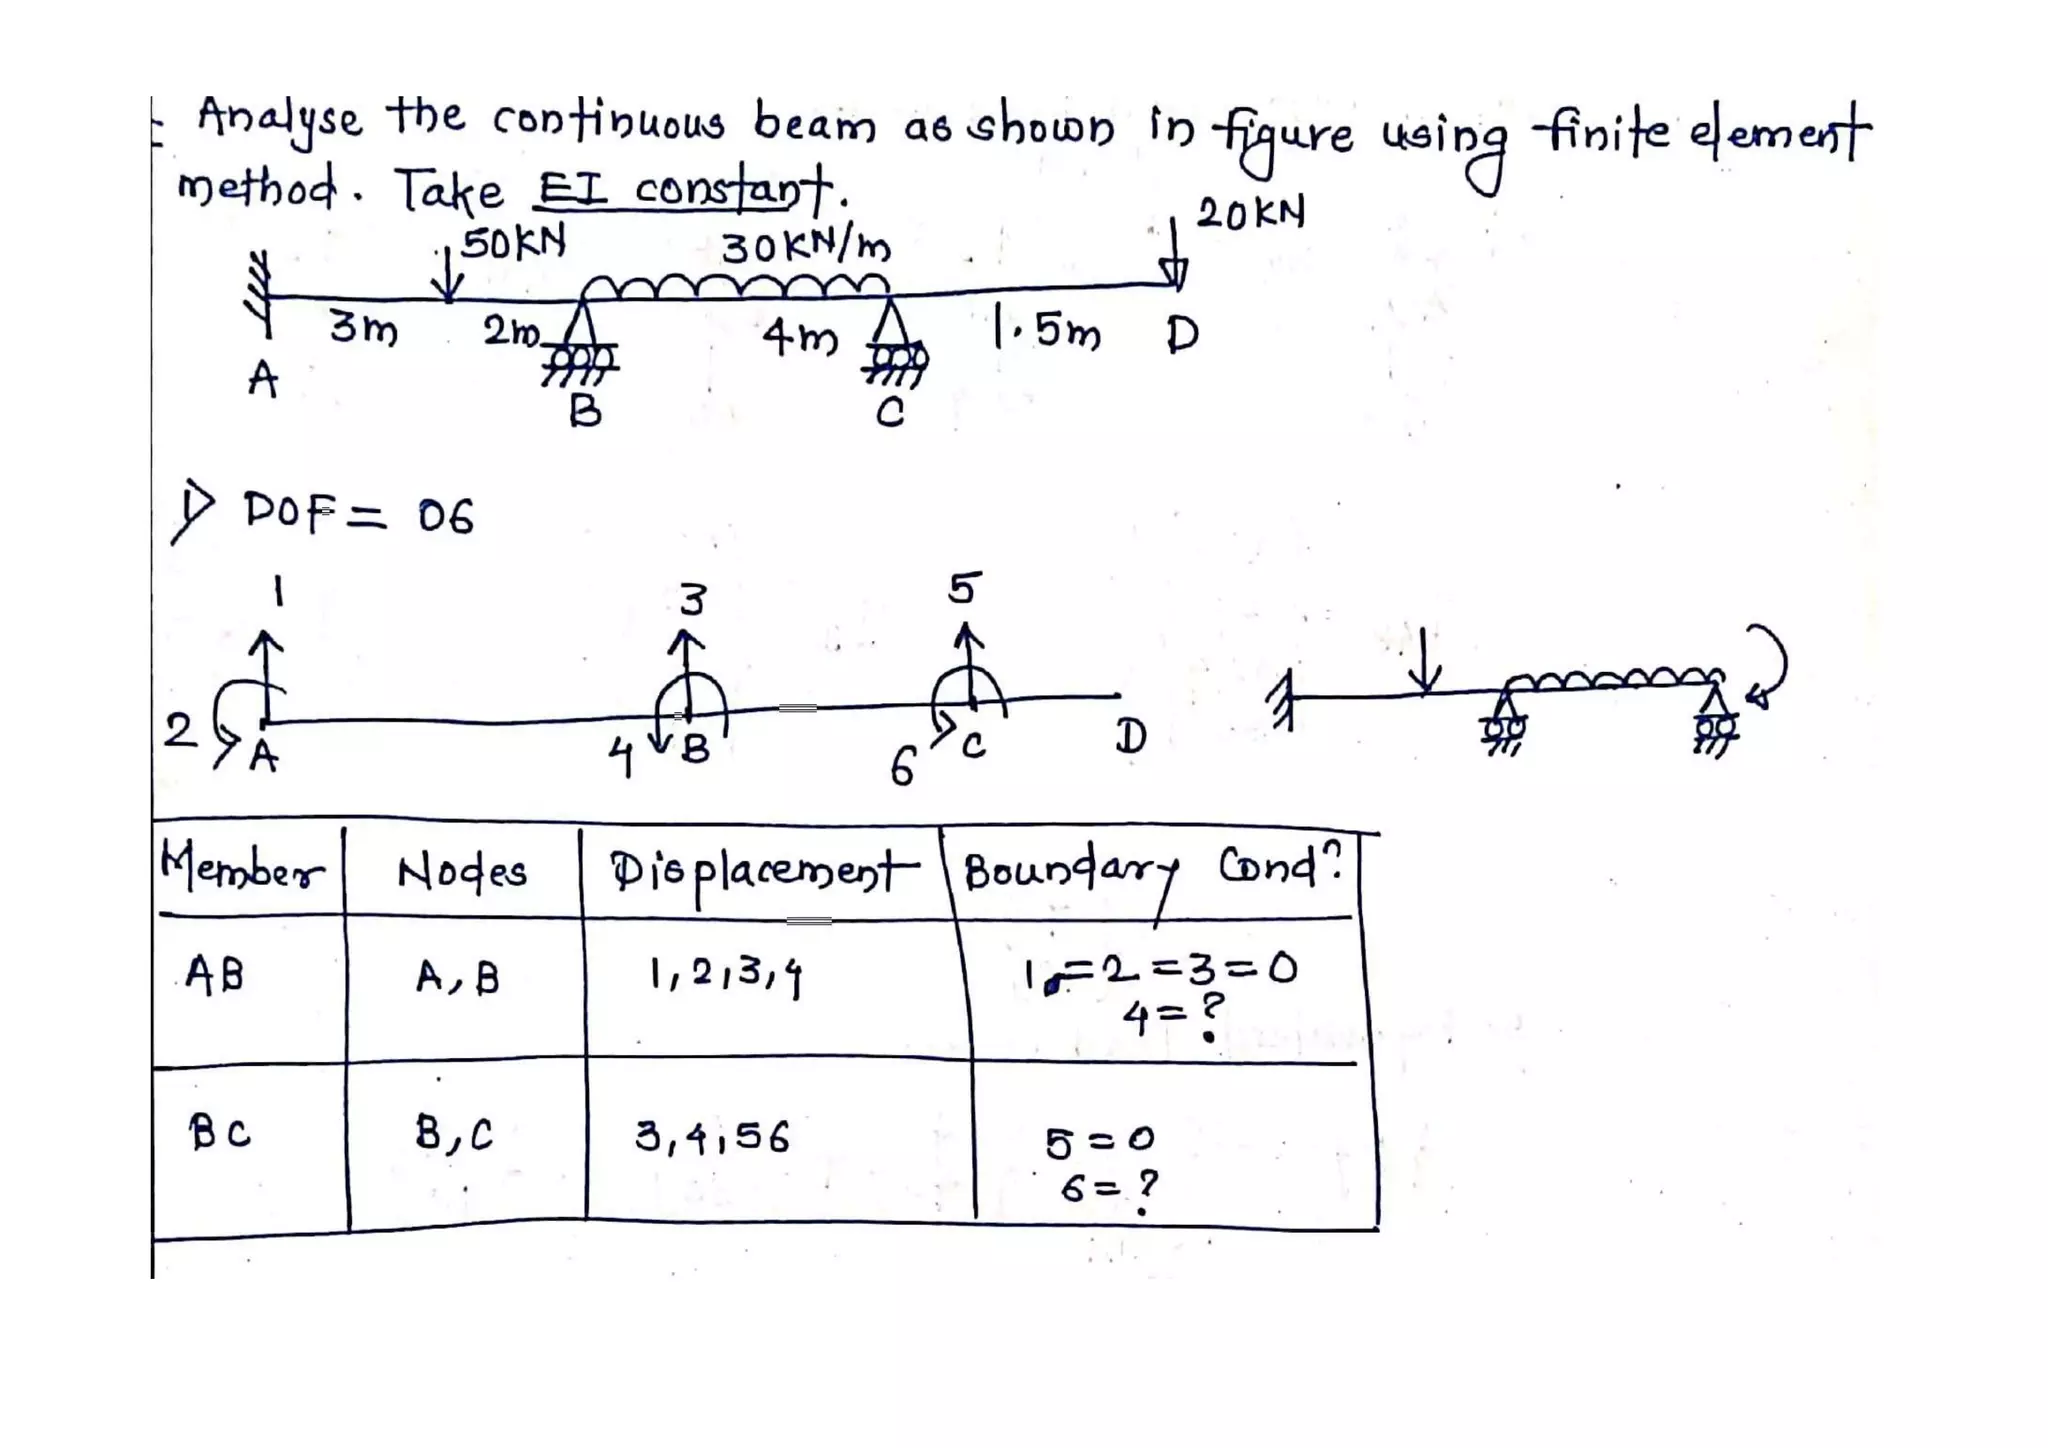 Analyse the continuous beam as shown in figure using finite element
method. Take EI constant.
50KN 30KN/m 20KN
3m 2m 4m 1.5m D
A B C
1) DOF = 06
1 3 5
2 A 4 B 6 C D
Member Nodes Displacement Boundary Condn
AB A, B 1,2,3,4 1=2=3=0
4=?
BC B,C 3,4,56 5=0
6=?